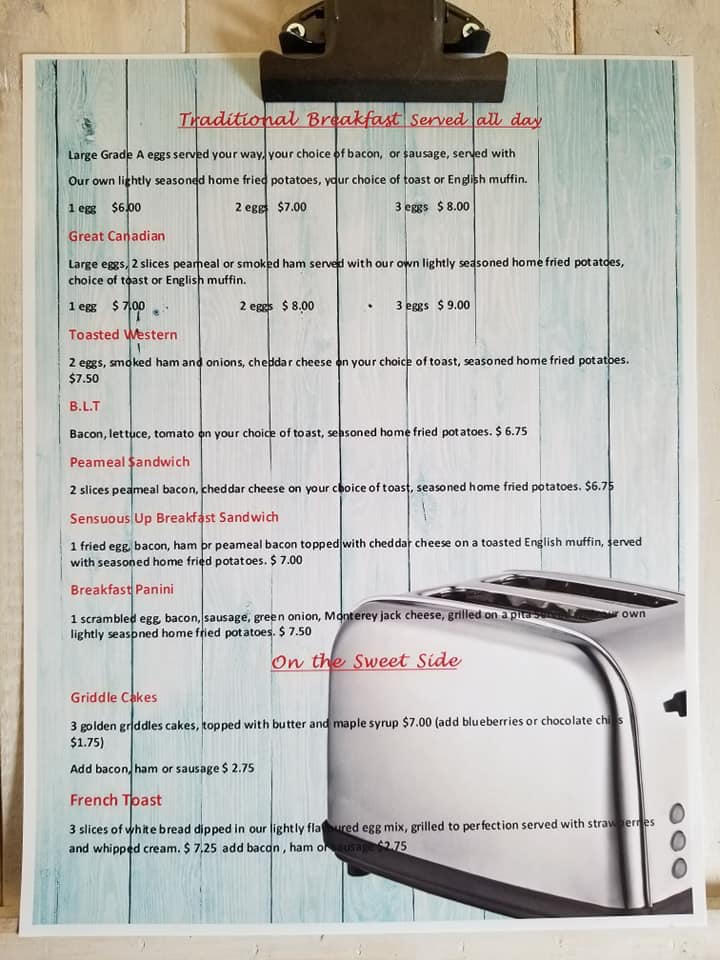 Traditional Breakfast served all day
Large Grade A eggs served your way, your choice of bacon, or sausage, served with
Our own lightly seasoned home fried potatoes, your choice of toast or English muffin.
1 egg $6.00 2 eggs $7.00 3 eggs $ 8.00
Great Canadian
Large eggs, 2 slices peameal or smoked ham served with our own lightly seasoned home fried potatoes,
choice of toast or English muffin.
1 egg $ 7.00 2 eggs $ 8.00 3 eggs $ 9.00
Toasted Western
2 eggs, smoked ham and onions, cheddar cheese on your choice of toast, seasoned home fried potatoes.
$7.50
B.L.T
Bacon, lettuce, tomato on your choice of toast, seasoned home fried potatoes. $ 6.75
Peameal Sandwich
2 slices peameal bacon, cheddar cheese on your choice of toast, seasoned home fried potatoes. $6.75
Sensuous Up Breakfast Sandwich
1 fried egg, bacon, ham or peameal bacon topped with cheddar cheese on a toasted English muffin, served
with seasoned home fried potatoes. $ 7.00
Breakfast Panini
1 scrambled egg, bacon, sausage, green onion, Monterey jack cheese, grilled on a pita our own
lightly seasoned home fried potatoes. $ 7.50
On the Sweet Side
Griddle Cakes
3 golden griddles cakes, topped with butter and maple syrup $7.00 (add blueberries or chocolate chips
$1.75)
Add bacon, ham or sausage $ 2.75
French Toast
3 slices of white bread dipped in our lightly flavoured egg mix, grilled to perfection served with strawberries
and whipped cream. $ 7.25 add bacon , ham or sausage $2.75